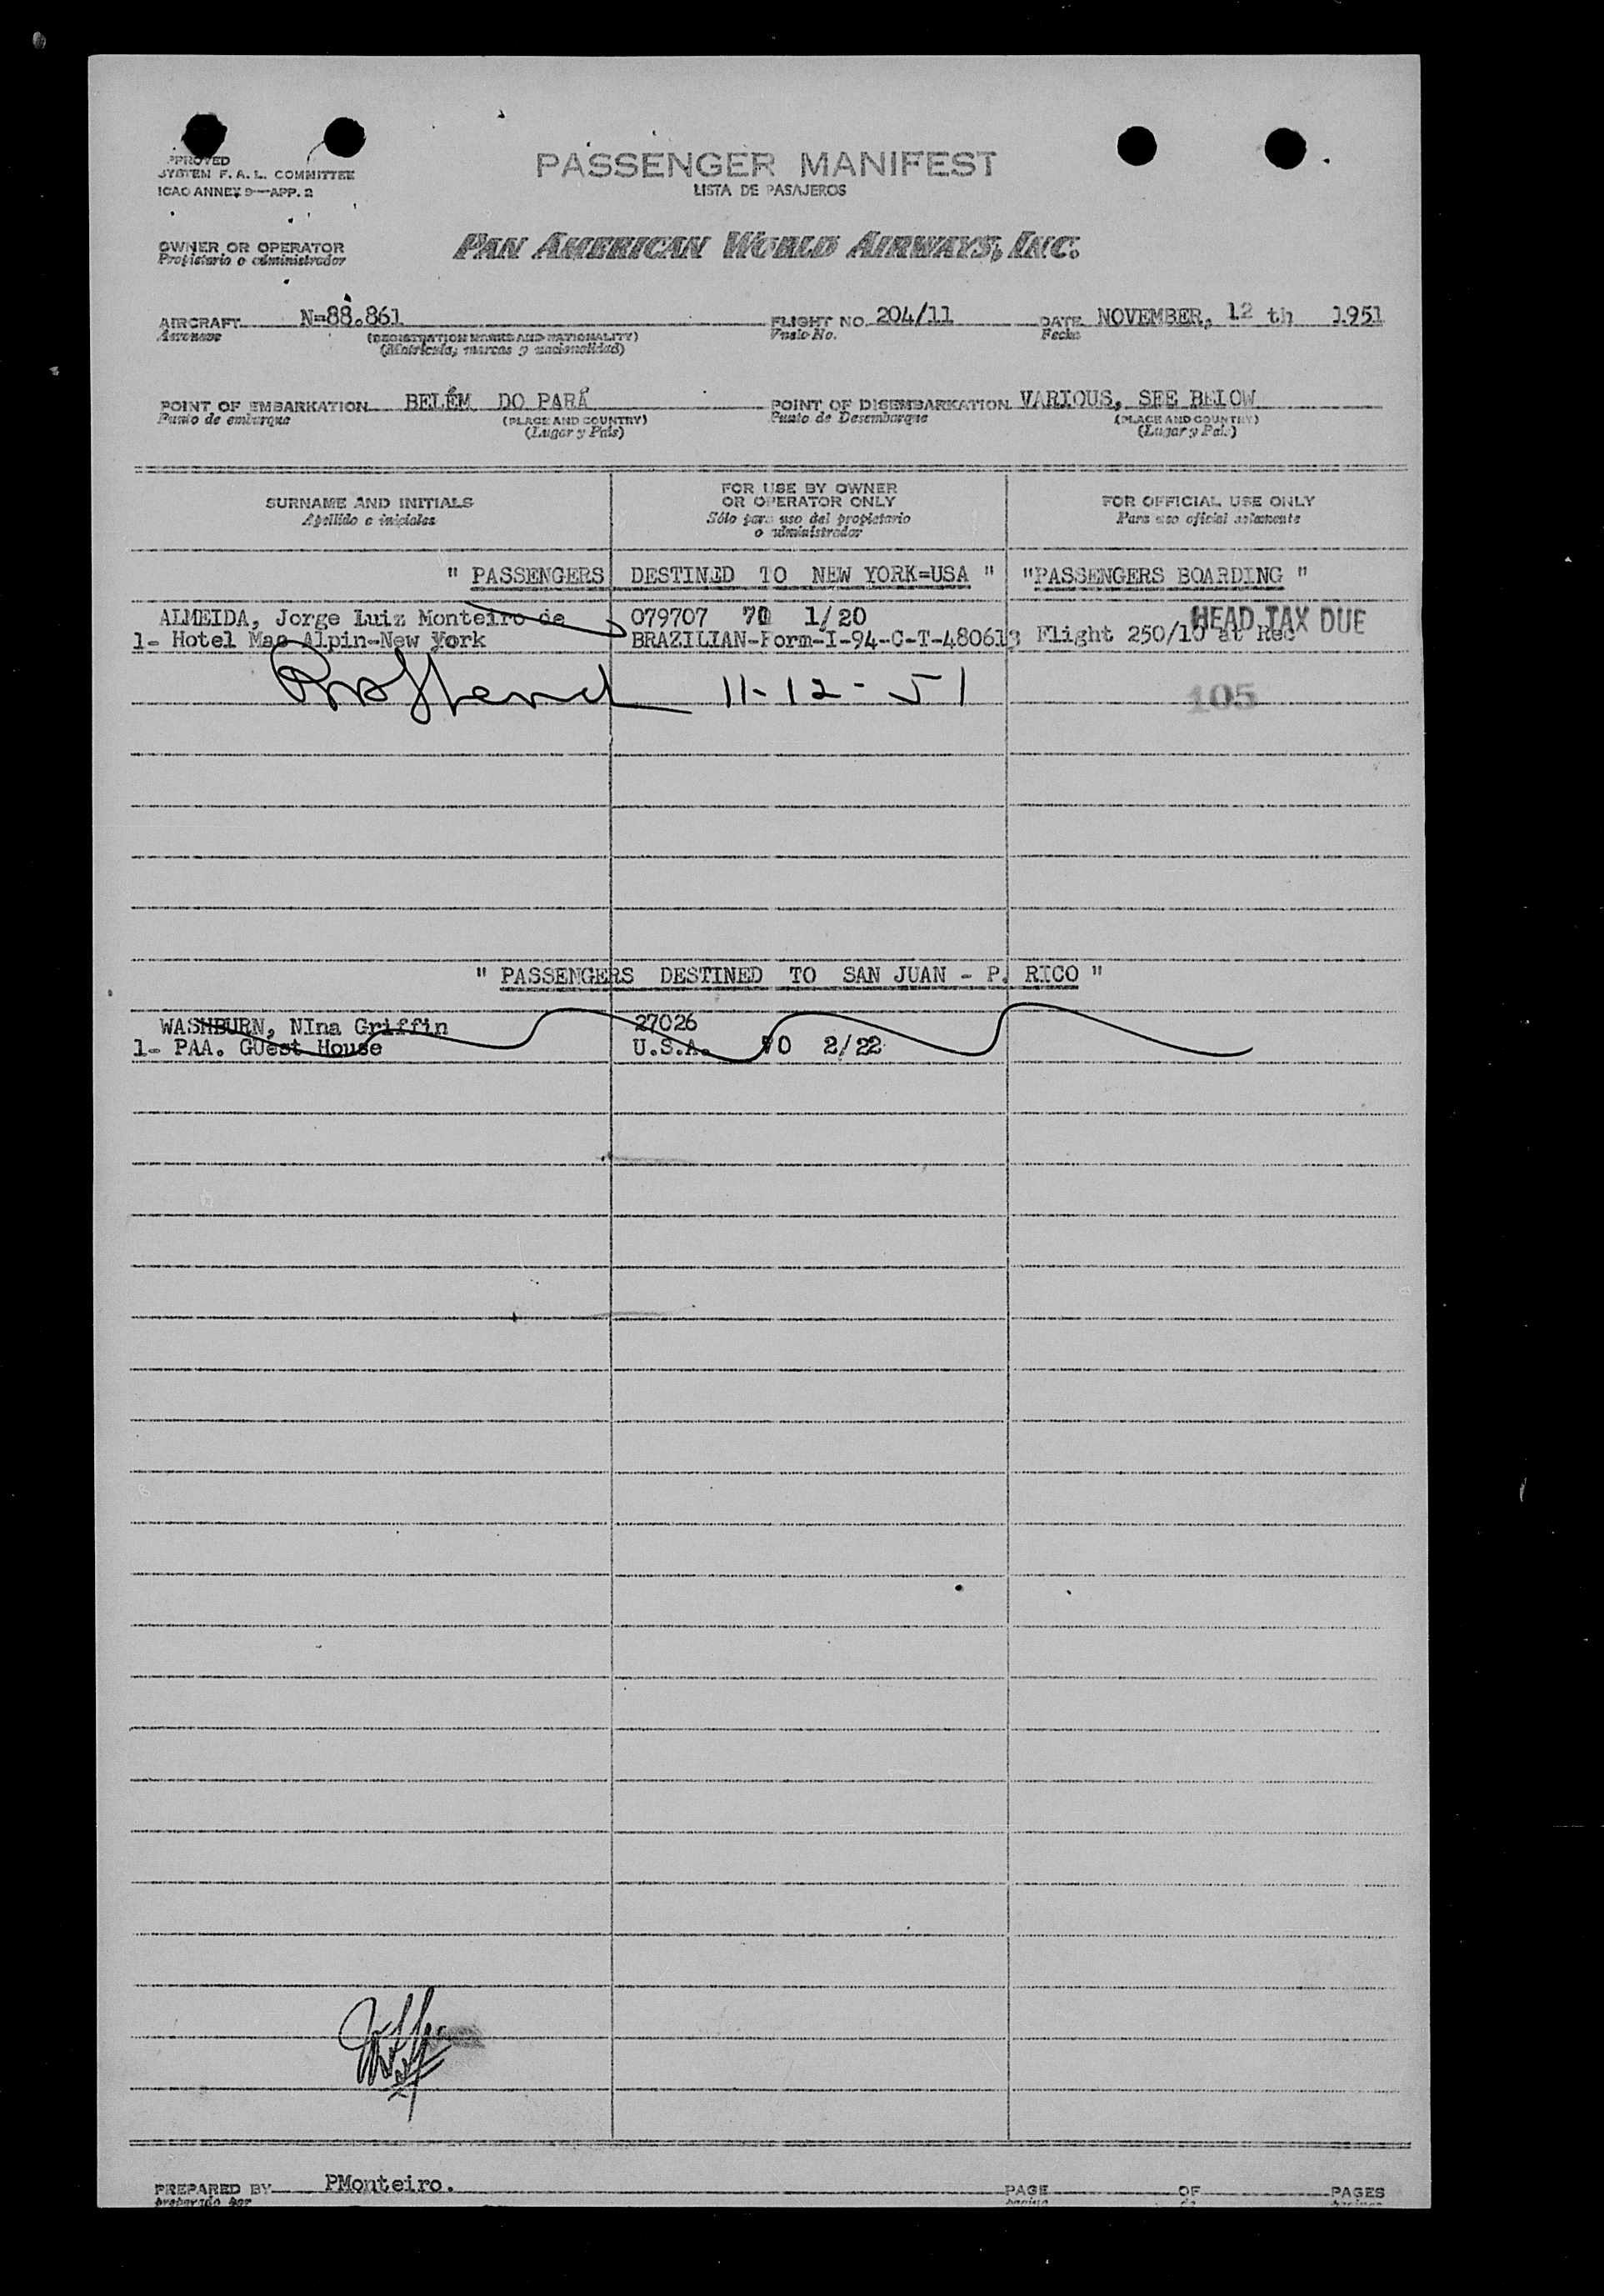 APPROVED
SYSTEM F. A. L. COMMITTEE
ICAO ANNEX 9—APP. 2
PASSENGER MANIFEST
LISTA DE PASAJEROS
OWNER OR OPERATOR
Propietario o administrador
PAN AMERICAN WORLD AIRWAYS, INC.
AIRCRAFT N-88.861 FLIGHT NO. 204/11 DATE NOVEMBER, 12 th 1951
Aeronave (REGISTRATION MARKS AND NATIONALITY) Vuelo No. Fecha
(Matrícula, marcas y nacionalidad)
POINT OF EMBARKATION BELÉM DO PARÁ POINT OF DISEMBARKATION VARIOUS, SEE BELOW
Punto de embarque (PLACE AND COUNTRY) Punto de Desembarque (PLACE AND COUNTRY)
(Lugar y País) (Lugar y País)
SURNAME AND INITIALS
Apellido e iniciales
FOR USE BY OWNER
OR OPERATOR ONLY
Sólo para uso del propietario
o administrador
FOR OFFICIAL USE ONLY
Para uso oficial solamente
" PASSENGERS DESTINED TO NEW YORK=USA " "PASSENGERS BOARDING "
ALMEIDA, Jorge Luiz Monteiro de 079707 70 1/20 HEAD TAX DUE
1- Hotel Mac-Alpin-New York BRAZILIAN-Form-I-94-C-T-480613 Flight 250/10 at Rec
11-12-51 105
" PASSENGERS DESTINED TO SAN JUAN - P. RICO "
WASHBURN, NIna Griffin 27026
1- PAA. GUest House U.S.A. 70 2/22
PREPARED BY PMonteiro. PAGE OF PAGES
preparado por página de páginas